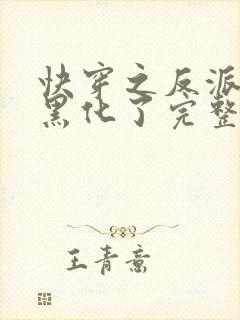 快穿之反派
黑化了完整
王青意